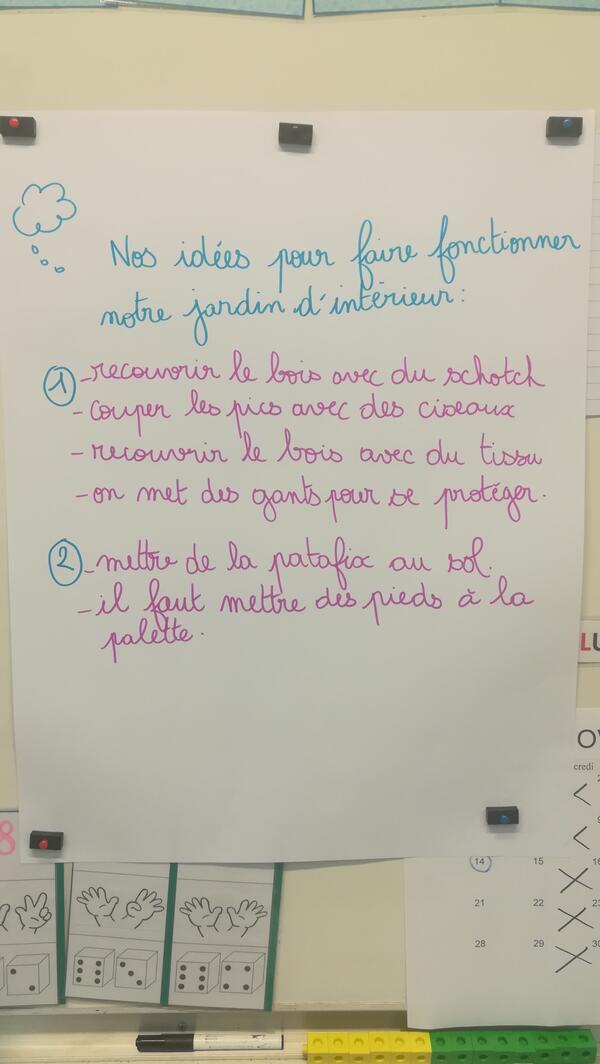 Nos idées pour faire fonctionner
notre jardin d'intérieur :
1 - recouvrir le bois avec du schotch
- couper les pics avec des ciseaux
- recouvrir le bois avec du tissu
- on met des gants pour se protéger.
2 - mettre de la patafix au sol.
- il faut mettre des pieds à la
palette.
LU
OV
credi
8
14 15 16
21 22 23
28 29 30